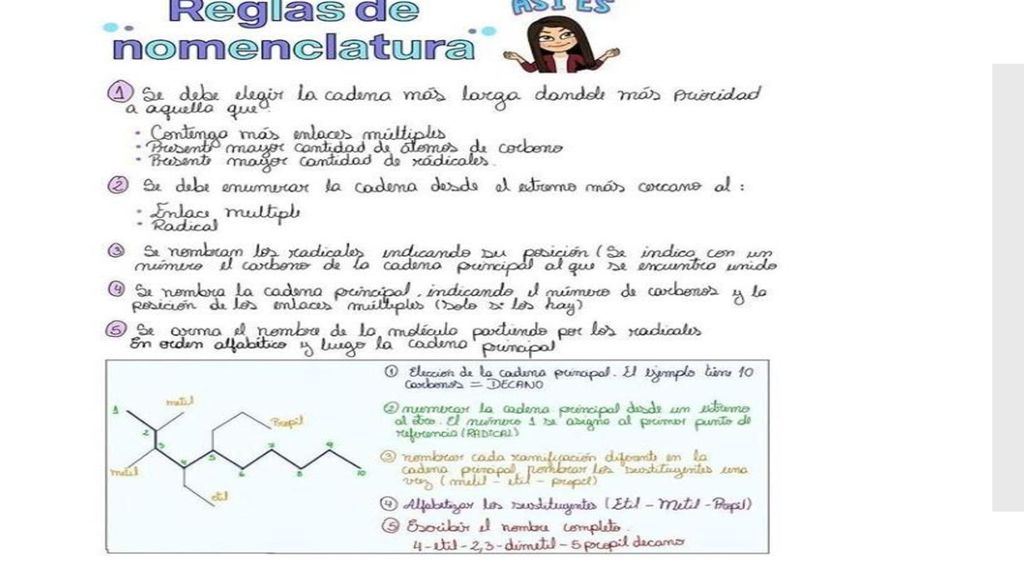 Reglas de
nomenclatura
ASÍ ES
1 Se debe elegir la cadena más larga dandole más prioridad
a aquella que:
• Contenga más enlaces múltiples
• Presente mayor cantidad de átomos de carbono
• Presente mayor cantidad de radicales.
2 Se debe enumerar la cadena desde el extremo más cercano al:
• Enlace multiple
• Radical
3 Se nombran los radicales indicando su posición (Se indica con un
número el carbono de la cadena principal al que se encuentra unido
4 Se nombra la cadena principal, indicando el número de carbonos y la
posición de los enlaces múltiples (solo si los hay)
5 Se arma el nombre de la molécula partiendo por los radicales
En orden alfabético y luego la cadena principal
1
metil
2
3
Propil
metil
4
5
6
7
8
9
10
etil
1 Elección de la cadena principal. El ejemplo tiene 10
carbonos = DECANO
2 numerar la cadena principal desde un extremo
al otro. El número 1 se asigna al primer punto de
referencia (RADICAL)
3 nombrar cada ramificación diferente en la
cadena principal, nombrar los sustituyentes una
vez (metil - etil - propil)
4 Alfabetizar los sustituyentes (Etil - Metil - Propil)
5 Escribir el nombre completo.
4-etil-2,3-dimetil-5propil decano